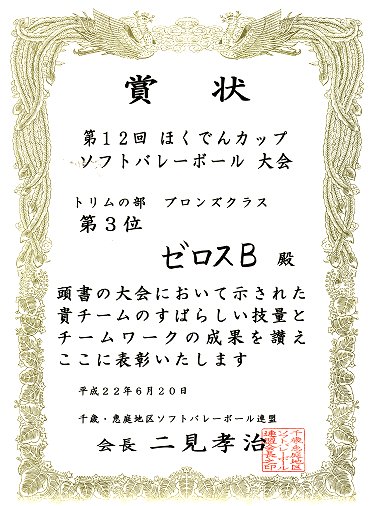 賞状
第12回 ほくでんカップ
ソフトバレーボール 大会
トリムの部 ブロンズクラス
第3位
ゼロスB 殿
頭書の大会において示された
貴チームのすばらしい技量と
チームワークの成果を讃え
ここに表彰いたします
平成22年6月20日
千歳・恵庭地区ソフトバレーボール連盟
会長 二見孝治
千歳恵庭地区
ソフトバレーボール
連盟会長之印